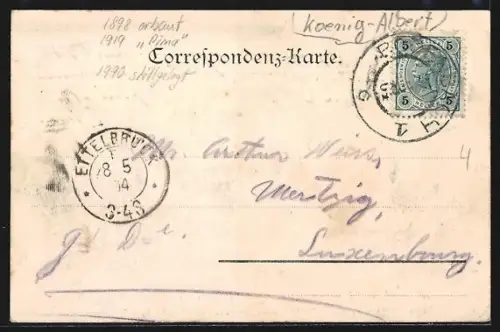 1898 erbaut
1919 "Pirna"
1990 stillgelegt
(Koenig-Albert)
Correspondenz-Karte.
5 5
5 5
1
ETTELBRUCK
8 5
04
3-4S
Mr. Arthur
Mertzig,
Luxembourg.
4